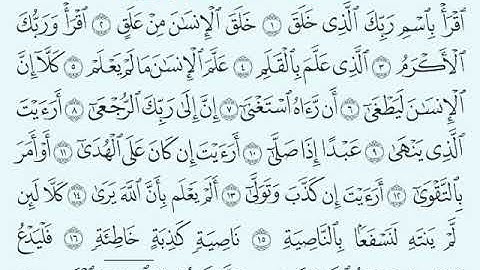 ٱقْرَأْ بِٱسْمِ رَبِّكَ ٱلَّذِى خَلَقَ ١ خَلَقَ ٱلْإِنسَٰنَ مِنْ عَلَقٍ ٢ ٱقْرَأْ وَرَبُّكَ
ٱلْأَكْرَمُ ٣ ٱلَّذِى عَلَّمَ بِٱلْقَلَمِ ٤ عَلَّمَ ٱلْإِنسَٰنَ مَا لَمْ يَعْلَمْ ٥ كَلَّآ إِنَّ
ٱلْإِنسَٰنَ لَيَطْغَىٰٓ ٦ أَن رَّءَاهُ ٱسْتَغْنَىٰٓ ٧ إِنَّ إِلَىٰ رَبِّكَ ٱلرُّجْعَىٰٓ ٨ أَرَءَيْتَ
ٱلَّذِى يَنْهَىٰ ٩ عَبْدًا إِذَا صَلَّىٰٓ ١٠ أَرَءَيْتَ إِن كَانَ عَلَى ٱلْهُدَىٰٓ ١١ أَوْ أَمَرَ
بِٱلتَّقْوَىٰٓ ١٢ أَرَءَيْتَ إِن كَذَّبَ وَتَوَلَّىٰٓ ١٣ أَلَمْ يَعْلَم بِأَنَّ ٱللَّهَ يَرَىٰ ١٤ كَلَّا لَئِن
لَّمْ يَنتَهِ لَنَسْفَعًۢا بِٱلنَّاصِيَةِ ١٥ نَاصِيَةٍ كَٰذِبَةٍ خَاطِئَةٍ ١٦ فَلْيَدْعُ